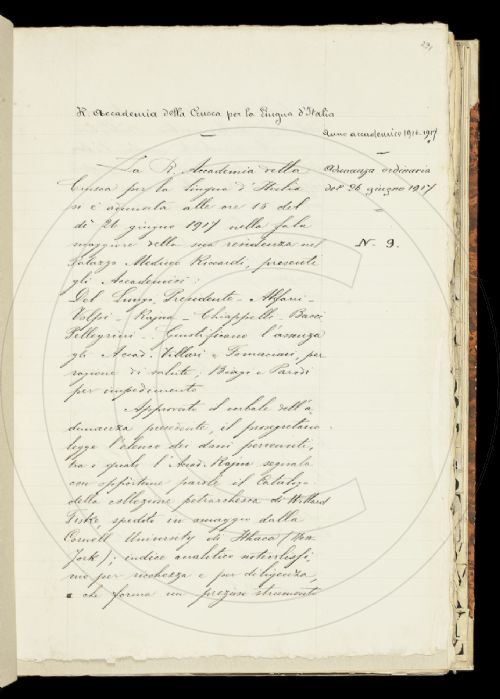 29,
R. Accademia della Crusca per la Lingua d'Italia
Anno accademico 1916-1917
Adunanza ordinaria
del 26 giugno 1917
N. 9.
La R. Accademia della
Crusca per la Lingua d'Italia
si è adunata alle ore 15 del
dì 26 giugno 1917 nella sala
maggiore della sua residenza nel
Palazzo Mediceo Riccardi, presenti
gli Accademici:
Del Lungo, Presidente - Alfani -
Volpi - Rajna - Chiappelli - Bacci
Pellegrini - Giustificano l'assenza
gli Accad. Villari e Tommasini, per
ragione di salute; Biagi e Parodi
per impedimento
Approvato il verbale dell'a-
dunanza precedente, il prosegretario
legge l'elenco dei doni pervenuti,
tra i quali l'Accad. Rajna segnala
con opportune parole il Catalogo
della collezione petrarchesca di Willard
Fiske, spedito in omaggio dalla
Cornell University di Ithaca (New
York); indice analitico notevolissi-
mo per ricchezza e per diligenza,
e che forma un prezioso strumento